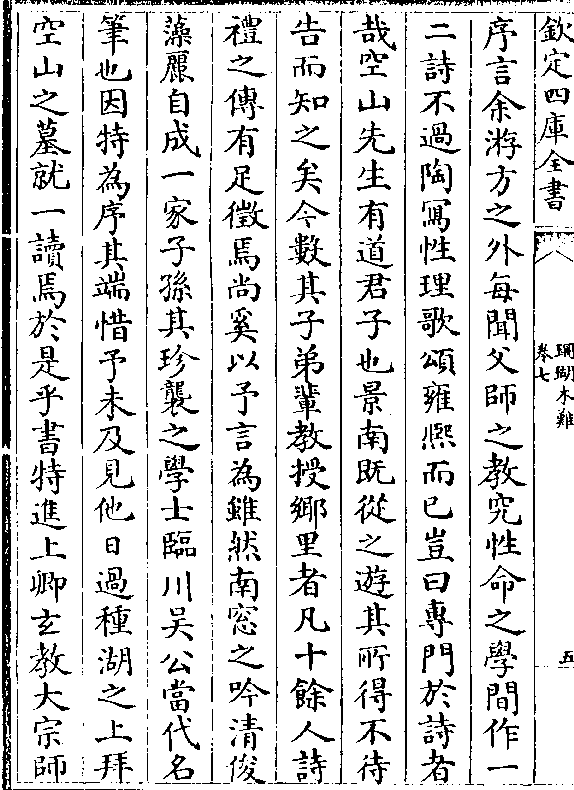 欽定四庫全書
珊瑚木難
卷七
五
序言余游方之外每聞父師之教究性命之學間作一
二詩不過陶寫性理歌頌雍熙而已豈曰專門於詩者
哉空山先生有道君子也景南既從之遊其所得不待
告而知之矣今數其子弟輩教授鄉里者凡十餘人詩
禮之傳有足徵焉尚奚以予言為雖然南窓之吟清俊
藻麗自成一家子孫其珍襲之學士臨川吴公當代名
筆也因特為序其端惜予未及見他日過種湖之上拜
空山之墓就一讀焉於是乎書特進上卿玄教大宗師